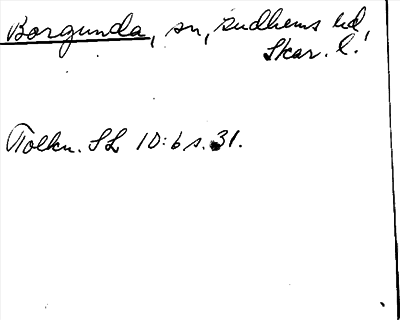 Borgunda, sn, Gudhems hd,
Skar. l.
Tolkn. SL 10:6 s. 31.